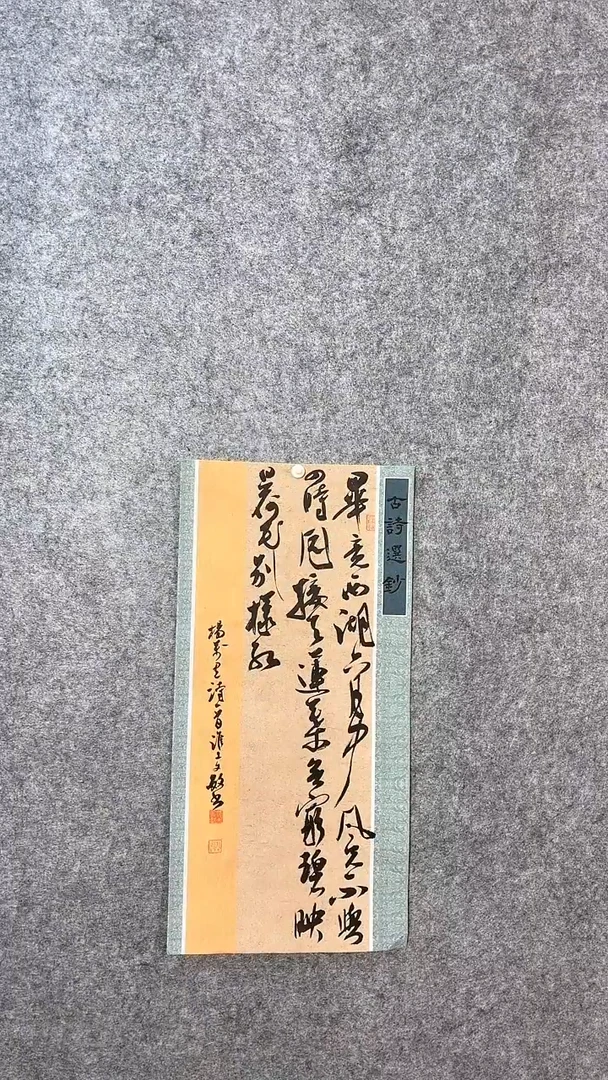 古詩選鈔
畢竟西湖六月中風光不與
四時同接天蓮葉無窮碧映
日荷花别樣紅
楊萬里詩一首